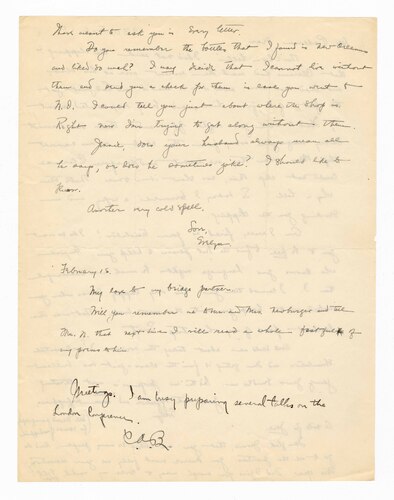 I have meant to ask you in every letter.
Do you remember the bottles that I found in New Orleans
and liked so well? I may decide that I cannot live without
them and send you a check for them in case you went to
N.O. I could tell you just about where the shop is.
Right now I'm trying to get along without them.
Jennie, does your husband always mean all
he says, or does he sometimes joke? I should like to
know.
Another very cold spell.
Love,
Evelyn
February 15.
My love to my bridge partner.
Will you remember me to Mr. and Mrs. Newburger and tell
Mr. N. that next time I will read a whole of
my poems to him.
Greetings. I am busy preparing several talks on the
London Conference.
C.A.B.